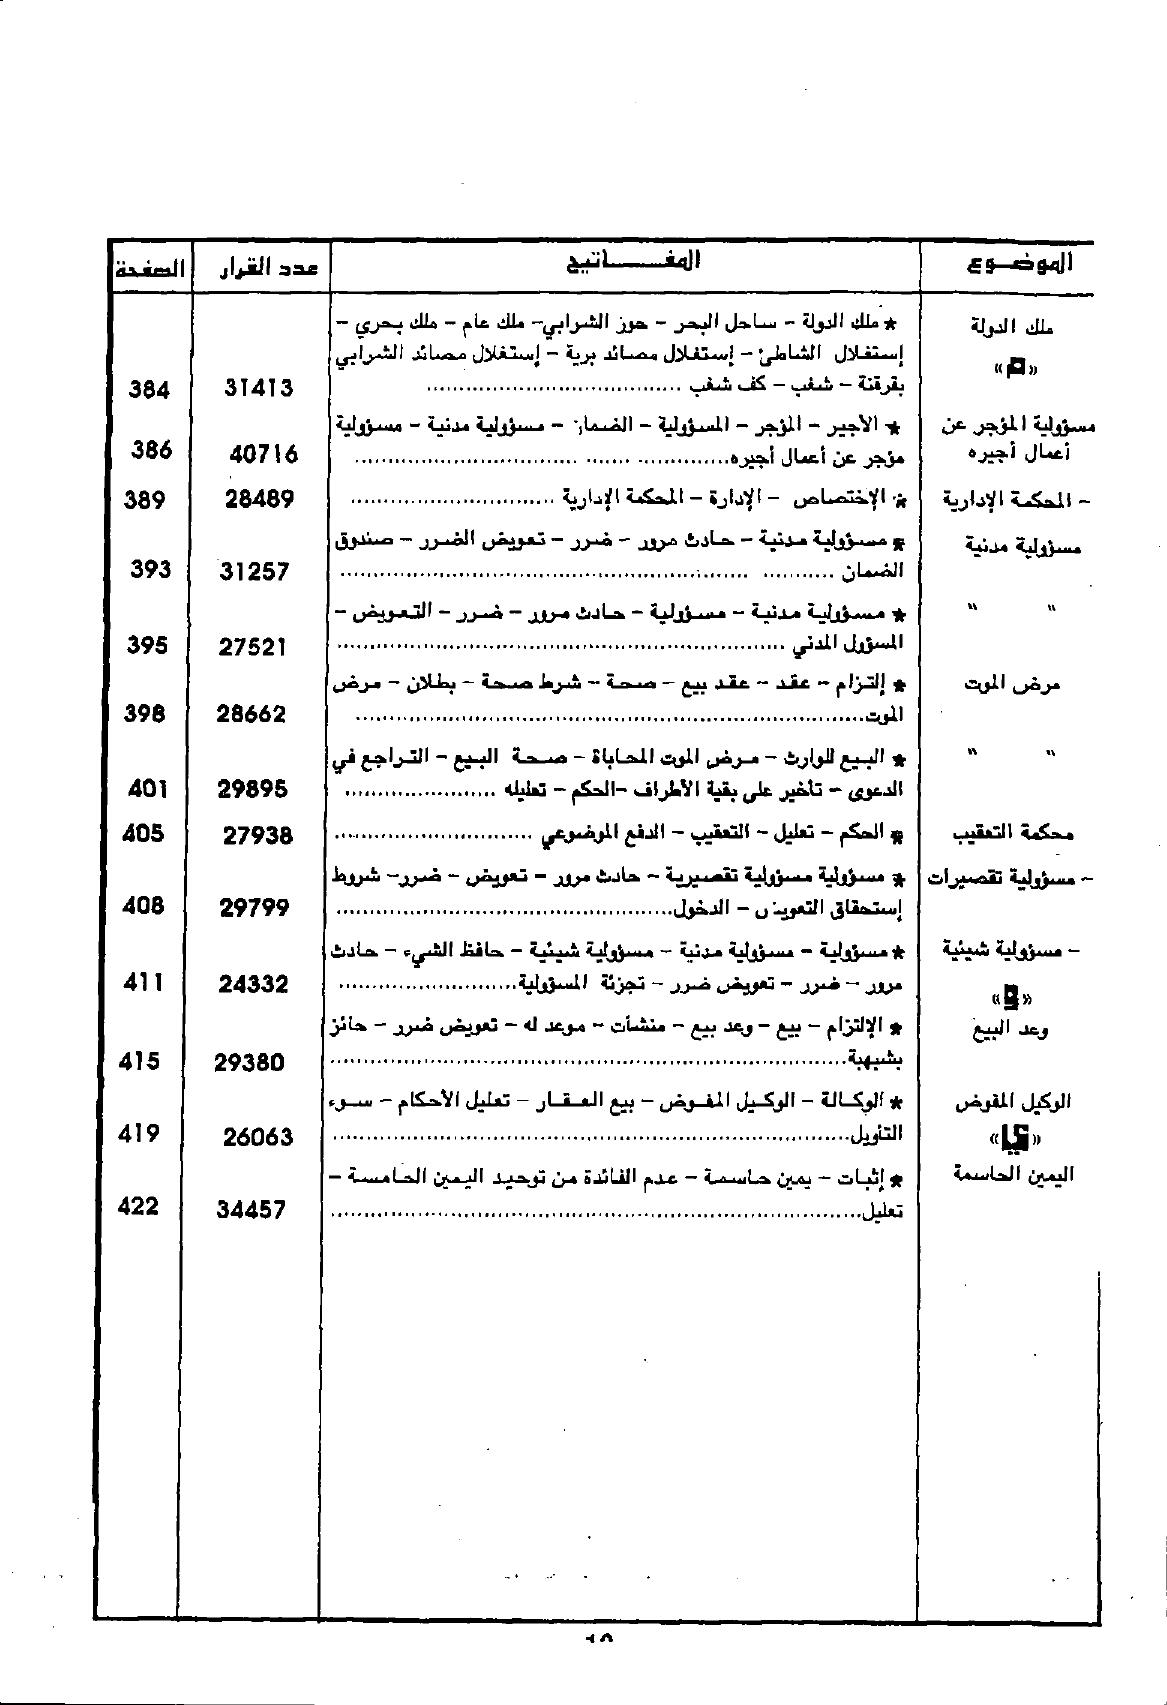 الموضوع المفاتيح عدد القرار الصفحة
ملك الدولة ★ ملك الدولة - ساحل البحر - حوز الشرابي- ملك عام - ملك بحري -
«م» إستغلال الشاطئ - إستغلال مصائد برية - إستغلال مصائد الشرابي
بقرقنة - شغب - كف شغب 31413 384
مسؤولية المؤجر عن ★ الأجير - المؤجر - المسؤولية - الضمان - مسؤولية مدنية - مسؤولية
أعمال أجيره مؤجر عن أعمال أجيره 40716 386
- المحكمة الإدارية ★ الإختصاص - الإدارة - المحكمة الإدارية 28489 389
مسؤولية مدنية ★ مسؤولية مدنية - حادث مرور - ضرر - تعويض الضرر - صندوق
الضمان 31257 393
" " ★ مسؤولية مدنية - مسؤولية - حادث مرور - ضرر - التعويض -
المسؤول المدني 27521 395
مرض الموت ★ إلتزام - عقد - عقد بيع - صحة - شرط صحة - بطلان - مرض
الموت 28662 398
" " ★ البيع للوارث - مرض الموت المحاباة - صحة البيع - التراجع في
الدعوى - تأخير على بقية الأطراف -الحكم - تعليله 29895 401
محكمة التعقيب ★ الحكم - تعليل - التعقيب - الدفع الموضوعي 27938 405
- مسؤولية تقصيرات ★ مسؤولية مسؤولية تقصيرية - حادث مرور - تعويض - ضرر- شروط
إستحقاق التعويض - الدخول 29799 408
- مسؤولية شيئية ★ مسؤولية - مسؤولية مدنية - مسؤولية شيئية - حافظ الشيء - حادث
«و» مرور - ضرر - تعويض ضرر - تجزئة المسؤولية 24332 411
وعد البيع ★ الإلتزام - بيع - وعد بيع - منشآت - موعد له - تعويض ضرر - حائز
بشبهة 29380 415
الوكيل المفوض ★ الوكالة - الوكيل المفوض - بيع العقار - تعليل الأحكام - سوء
«ي» التأويل 26063 419
اليمين الحاسمة ★ إثبات - يمين حاسمة - عدم الفائدة من توحيد اليمين الحامسة -
تعليل 34457 422